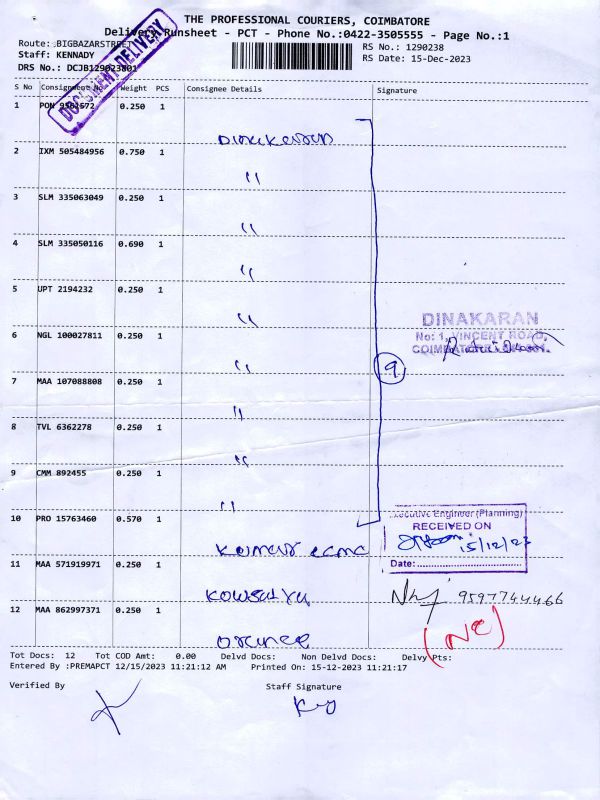 THE PROFESSIONAL COURIERS, COIMBATORE
Delivery Runsheet - PCT - Phone No.:0422-3505555 - Page No.:1
Route: BIGBAZARSTREET
RS No.: 1290238
Staff: KENNADY
RS Date: 15-Dec-2023
DRS No.: DCJB129023801
DOCUMENT DELIVERY
S No Consignment No. Weight PCS Consignee Details Signature
1 PON 9561572 0.250 1 Dinakaran
2 IXM 505484956 0.750 1 "
3 SLM 335063049 0.250 1 "
4 SLM 335050116 0.690 1 "
5 UPT 2194232 0.250 1 "
DINAKARAN
No: 1, VINCENT ROAD,
6 NGL 100027811 0.250 1 "
9
7 MAA 107088808 0.250 1 "
8 TVL 6362278 0.250 1 "
9 CMM 892455 0.250 1 "
10 PRO 15763460 0.570 1
Executive Engineer (Planning)
RECEIVED ON
15/12/23
Date:
11 MAA 571919971 0.250 1 Kowsalya
9597744466
12 MAA 862997371 0.250 1 orange
(NC)
Tot Docs: 12 Tot COD Amt: 0.00 Delvd Docs: Non Delvd Docs: Delvy Pts:
Entered By :PREMAPCT 12/15/2023 11:21:12 AM Printed On: 15-12-2023 11:21:17
Verified By Staff Signature